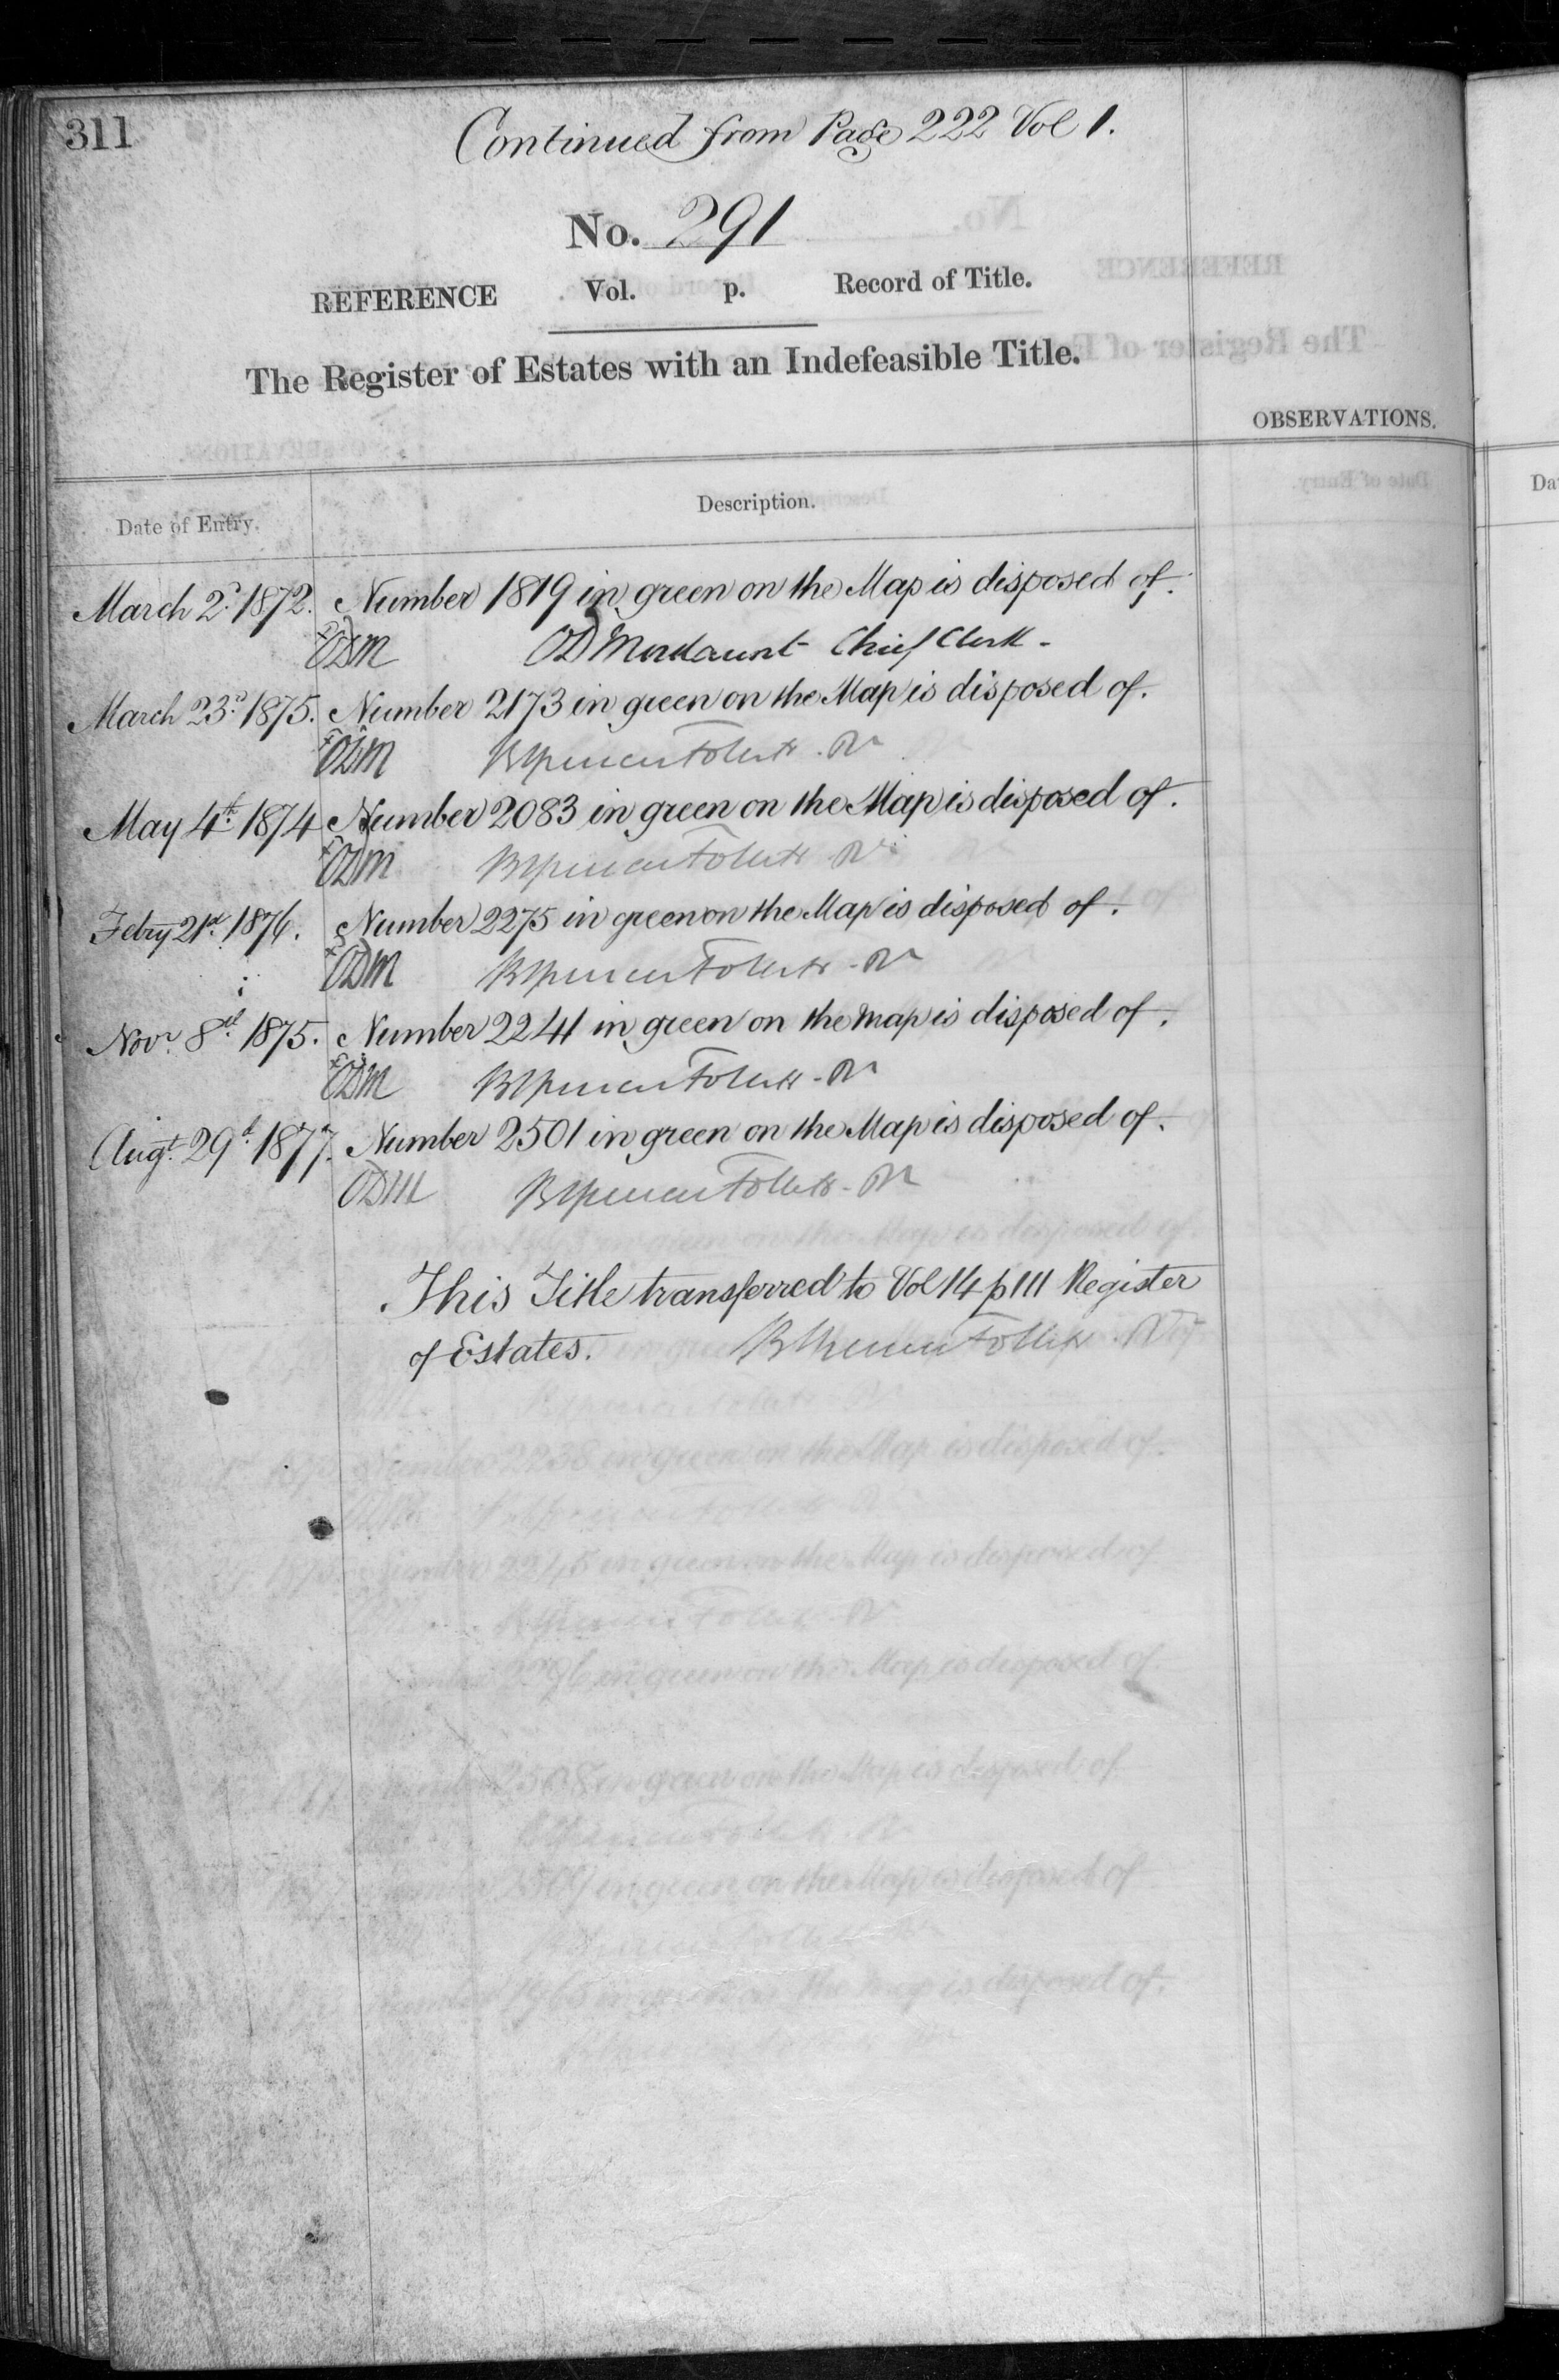 311
Continued from Page 222 Vol 1.
No. 291
REFERENCE Vol. p. Record of Title.
The Register of Estates with an Indefeasible Title.
OBSERVATIONS.
Date of Entry. Description.
March 2d. 1872. Number 1819 in green on the Map is disposed of.
ODM OD Mordaunt Chief Clerk -
March 23d. 1875. Number 2173 in green on the Map is disposed of.
ODM
May 4th. 1874 Number 2083 in green on the Map is disposed of.
ODM
Febry 21st. 1876. Number 2275 in green on the Map is disposed of.
ODM
Novr. 8th. 1875. Number 2241 in green on the map is disposed of.
ODM
Augt. 29th. 1877. Number 2501 in green on the Map is disposed of.
ODM
This Title transferred to Vol 14 p 111 Register
of Estates.